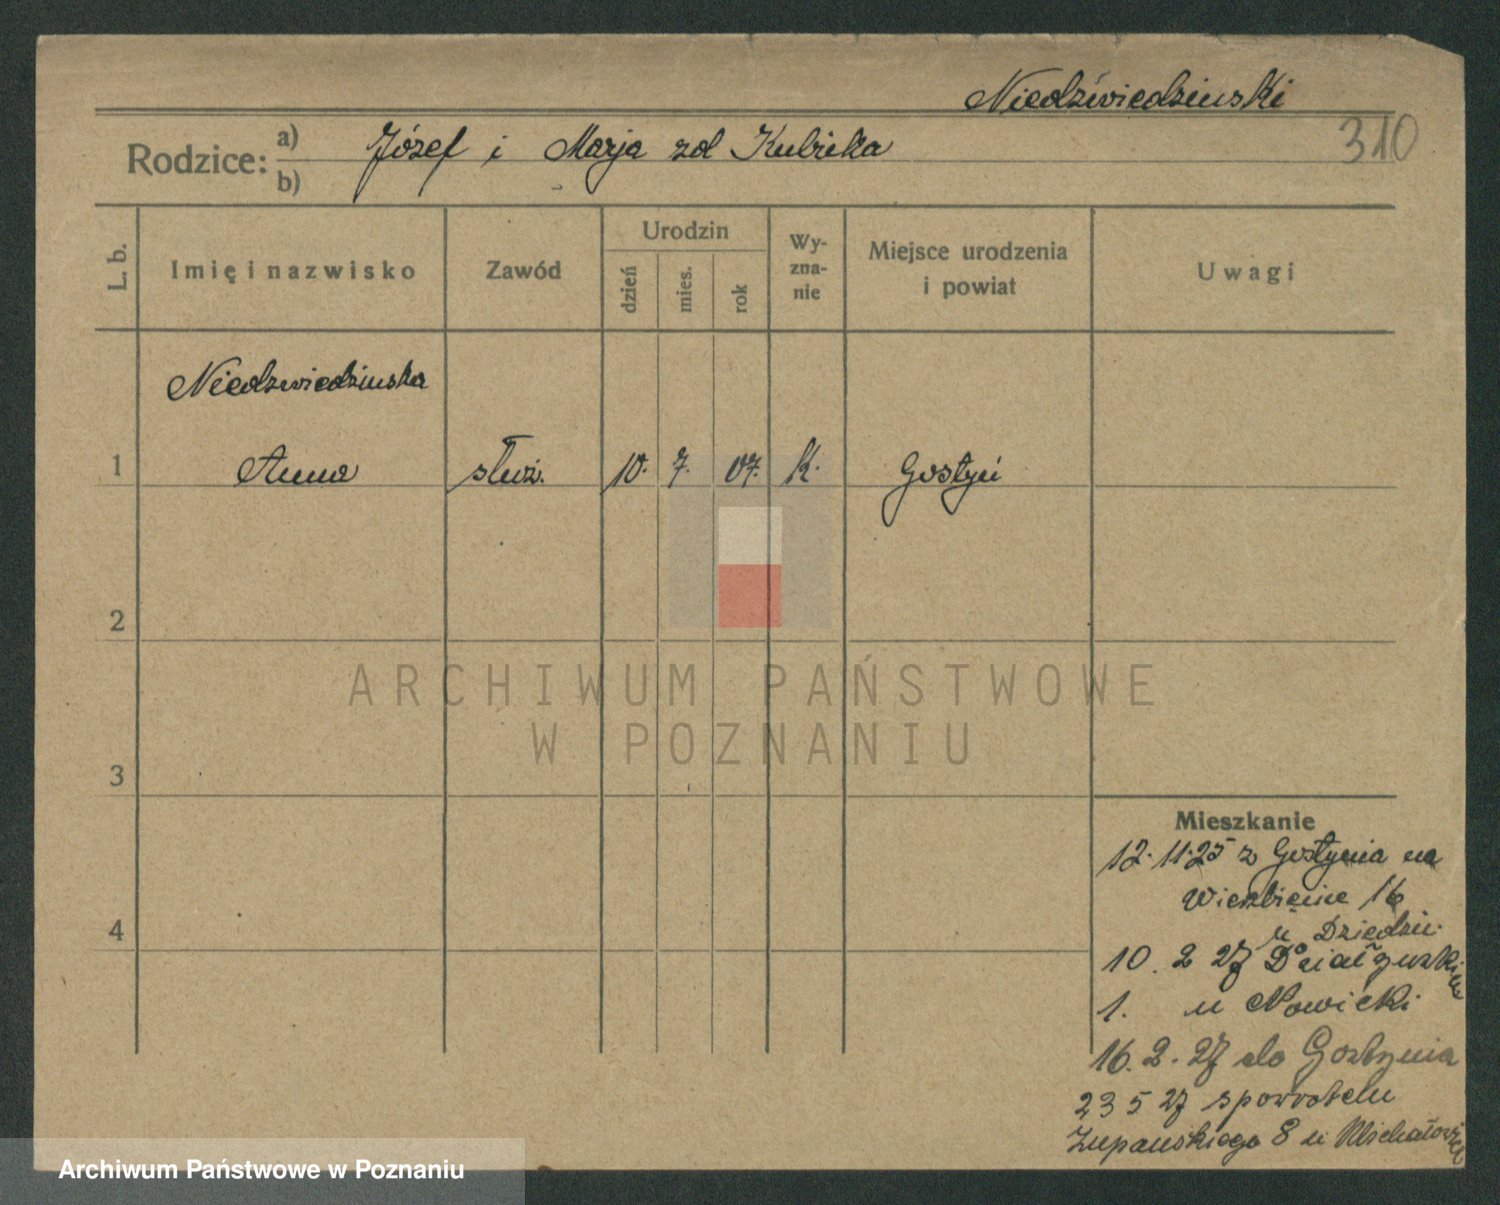 Niedźwiedzinski
310
Rodzice: a) Józef i Marja zd Kubicka
b)
L. b.
Imię i nazwisko
Zawód
Urodzin
dzień
mies.
rok
Wy-
zna-
nie
Miejsce urodzenia
i powiat
Uwagi
Niedzwiedzinska
1 Anna służ. 10. 7. 07. K. Gostyń
2
3
4
ARCHIWUM PAŃSTWOWE
W POZNANIU
Mieszkanie
12.11.25 z Gostynia na
Wierzbięcice 16
u Dziedzic
10. 2 27 Działyńskich
1. u Nowicki
16.2.27 do Gostynia
23 5 27 spowrotem
Żupańskiego 8 u
Archiwum Państwowe w Poznaniu